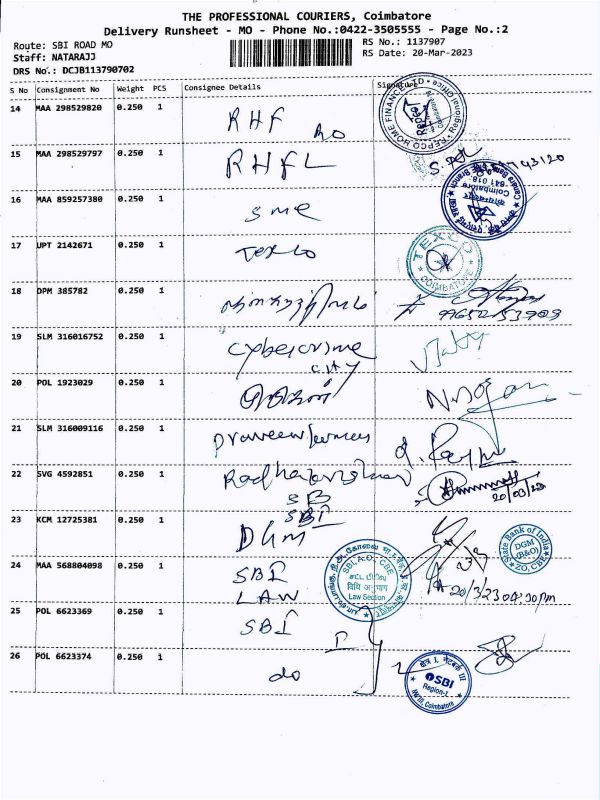 THE PROFESSIONAL COURIERS, Coimbatore
Delivery Runsheet - MO - Phone No.:0422-3505555 - Page No.:2
Route: SBI ROAD MO
RS No.: 1137907
Staff: NATARAJJ
RS Date: 20-Mar-2023
DRS No.: DCJB113790702
S No Consignment No Weight PCS Consignee Details Signature
14 MAA 298529820 0.250 1 RHF
REPCO HOME FINANCE LTD
15 MAA 298529797 0.250 1 RHFL
16 MAA 859257380 0.250 1 SME
Canara Bank
Coimbatore
641 018
17 UPT 2142671 0.250 1 Texco
TEXCO
COIMBATORE
18 DPM 385782 0.250 1
19 SLM 316016752 0.250 1 Cybercrime
city
20 POL 1923029 0.250 1
21 SLM 316009116 0.250 1
22 SVG 4592851 0.250 1 Radhakrishnan
SB
20/03/23
23 KCM 12725381 0.250 1 SBI
DGM
State Bank of India
DGM
(B&O)
ZO, CBE
24 MAA 568804098 0.250 1 SBI
LAW
SBI, A.O., CBE
சட்ட பிரிவு
विधि अनुभाग
Law Section
20/3/23 04:30pm
25 POL 6623369 0.250 1 SBI
26 POL 6623374 0.250 1 do
SBI
Region-I
NW III, Coimbatore